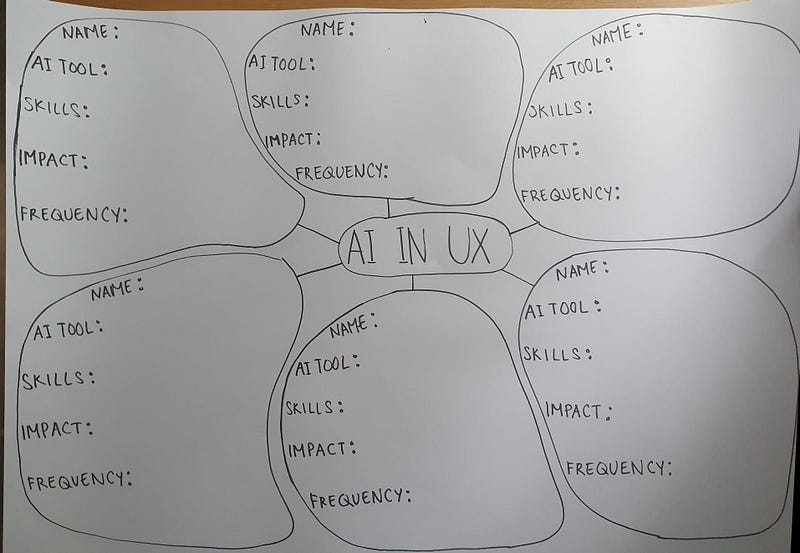 NAME:
AI TOOL:
SKILLS:
IMPACT:
FREQUENCY:
NAME:
AI TOOL:
SKILLS:
IMPACT:
FREQUENCY:
NAME:
AI TOOL:
SKILLS:
IMPACT:
FREQUENCY:
AI IN UX
NAME:
AI TOOL:
SKILLS:
IMPACT:
FREQUENCY:
NAME:
AI TOOL:
SKILLS:
IMPACT:
FREQUENCY:
NAME:
AI TOOL:
SKILLS:
IMPACT:
FREQUENCY: